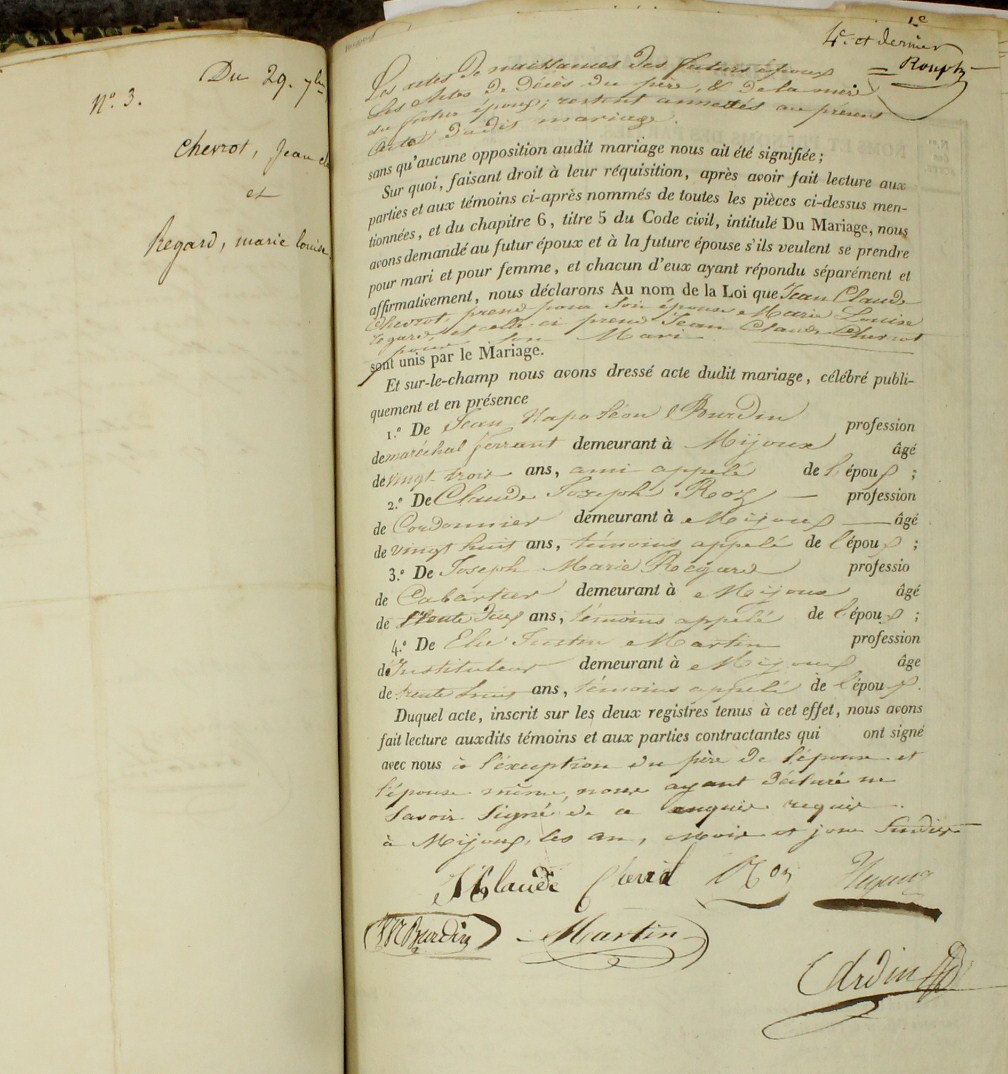 Du 29. 7bre
N.° 3.
Chevrot, Jean cl
et
Regard, marie louise
4.e et dernier
Les actes de naissances des futurs époux
les actes de décès du père, & de la mère
du futur époux; restent annexés au présent
acte dudit mariage.
sans qu'aucune opposition audit mariage nous ait été signifiée;
Sur quoi, faisant droit à leur réquisition, après avoir fait lecture aux
parties et aux témoins ci-après nommés de toutes les pièces ci-dessus men-
tionnées, et du chapitre 6, titre 5 du Code civil, intitulé Du Mariage, nous
avons demandé au futur époux et à la future épouse s'ils veulent se prendre
pour mari et pour femme, et chacun d'eux ayant répondu séparément et
affirmativement, nous déclarons Au nom de la Loi que Jean Claude
Chevrot, prend pour son épouse Marie Louise
Regard, et celle ci prend Jean Claude Chevrot
pour son Mari
sont unis par le Mariage.
Et sur-le-champ nous avons dressé acte dudit mariage, célébré publi-
quement et en présence
1.° De Jean Napoléon Burdin profession
de maréchal ferrant demeurant à Mijoux âgé
de vingt trois ans, ami appelé de l'époux;
2.° De Claude Joseph Roz — profession
de Cordonnier demeurant à Mijoux — âgé
de vingt huit ans, témoins appelé de l'époux;
3.° De Joseph Marie Régard professio
de Cabartier demeurant à Mijoux âgé
de trente deux ans, témoins appelé de l'époux;
4.° De Elie Justin Martin profession
de Instituteur demeurant à Mijoux âge
de trente ans, témoins appelé de l'époux.
Duquel acte, inscrit sur les deux registres tenus à cet effet, nous avons
fait lecture auxdits témoins et aux parties contractantes qui ont signé
avec nous à l'exeuption du père de l'épouse et
l'épouse même, nous ayant déclaré ne
savoir signé de ce enquis requis.
à Mijoux, les an, mois et jour susdits
J Claude Chevrot Roz Regard
JN Burdin Martin